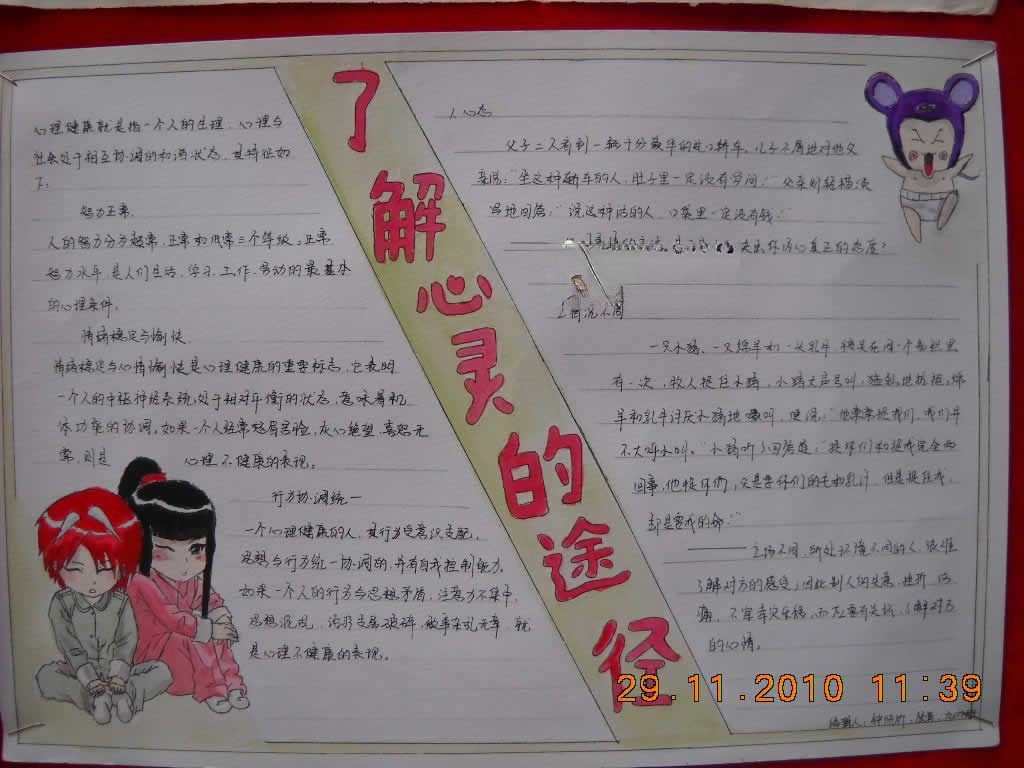 了解心灵的途径
心理健康就是指一个人的生理、心理与
社会处于相互协调的和谐状态,其特征如
下:
智力正常。
人的智力分为超常、正常和低常三个等级。正常
智力水平,是人们生活、学习、工作、劳动的最基本
的心理条件。
情绪稳定与愉快。
情绪稳定与心情愉快是心理健康的重要标志,它表明
一个人的中枢神经系统处于相对平衡的状态,意味着机
体功能的协调。如果一个人经常愁眉苦脸,灰心绝望,喜怒无
常,则是 心理不健康的表现。
行为协调统一
一个心理健康的人,其行为受意识支配,
思想与行为统一协调的,并有自我控制能力。
如果一个人的行为与思想矛盾,注意力不集中,
思想混乱,语言支离破碎,做事杂乱无章,就
是心理不健康的表现。
1 心态
父子二人看到一辆十分豪华的进口轿车。儿子不屑地对他父
亲说:“坐这种轿车的人,肚子里一定没有学问!”父亲则轻描淡
写地回答:“说这种话的人,口袋里一定没有钱!”
心真正的态度?
2 情况不同
一只小猪、一只绵羊和一头乳牛,被关在同一个畜栏里
有一次,牧人捉住小猪,小猪大声号叫,猛烈地抗拒,绵
羊和乳牛讨厌小猪地嚎叫,便说:“他常常捉我们,我们并
不大呼小叫。”小猪听了回答道:“捉你们和捉我完全两
回事,他捉你们,只是要你们的毛和乳汁,但是捉住我,
却是要我的命!”
立场不同、所处环境不同的人,很难
了解对方的感受;因此别人的失意、挫折、伤
痛,不宜幸灾乐祸,而应要有关怀、了解对方
的心情。
29.11.2010 11:39